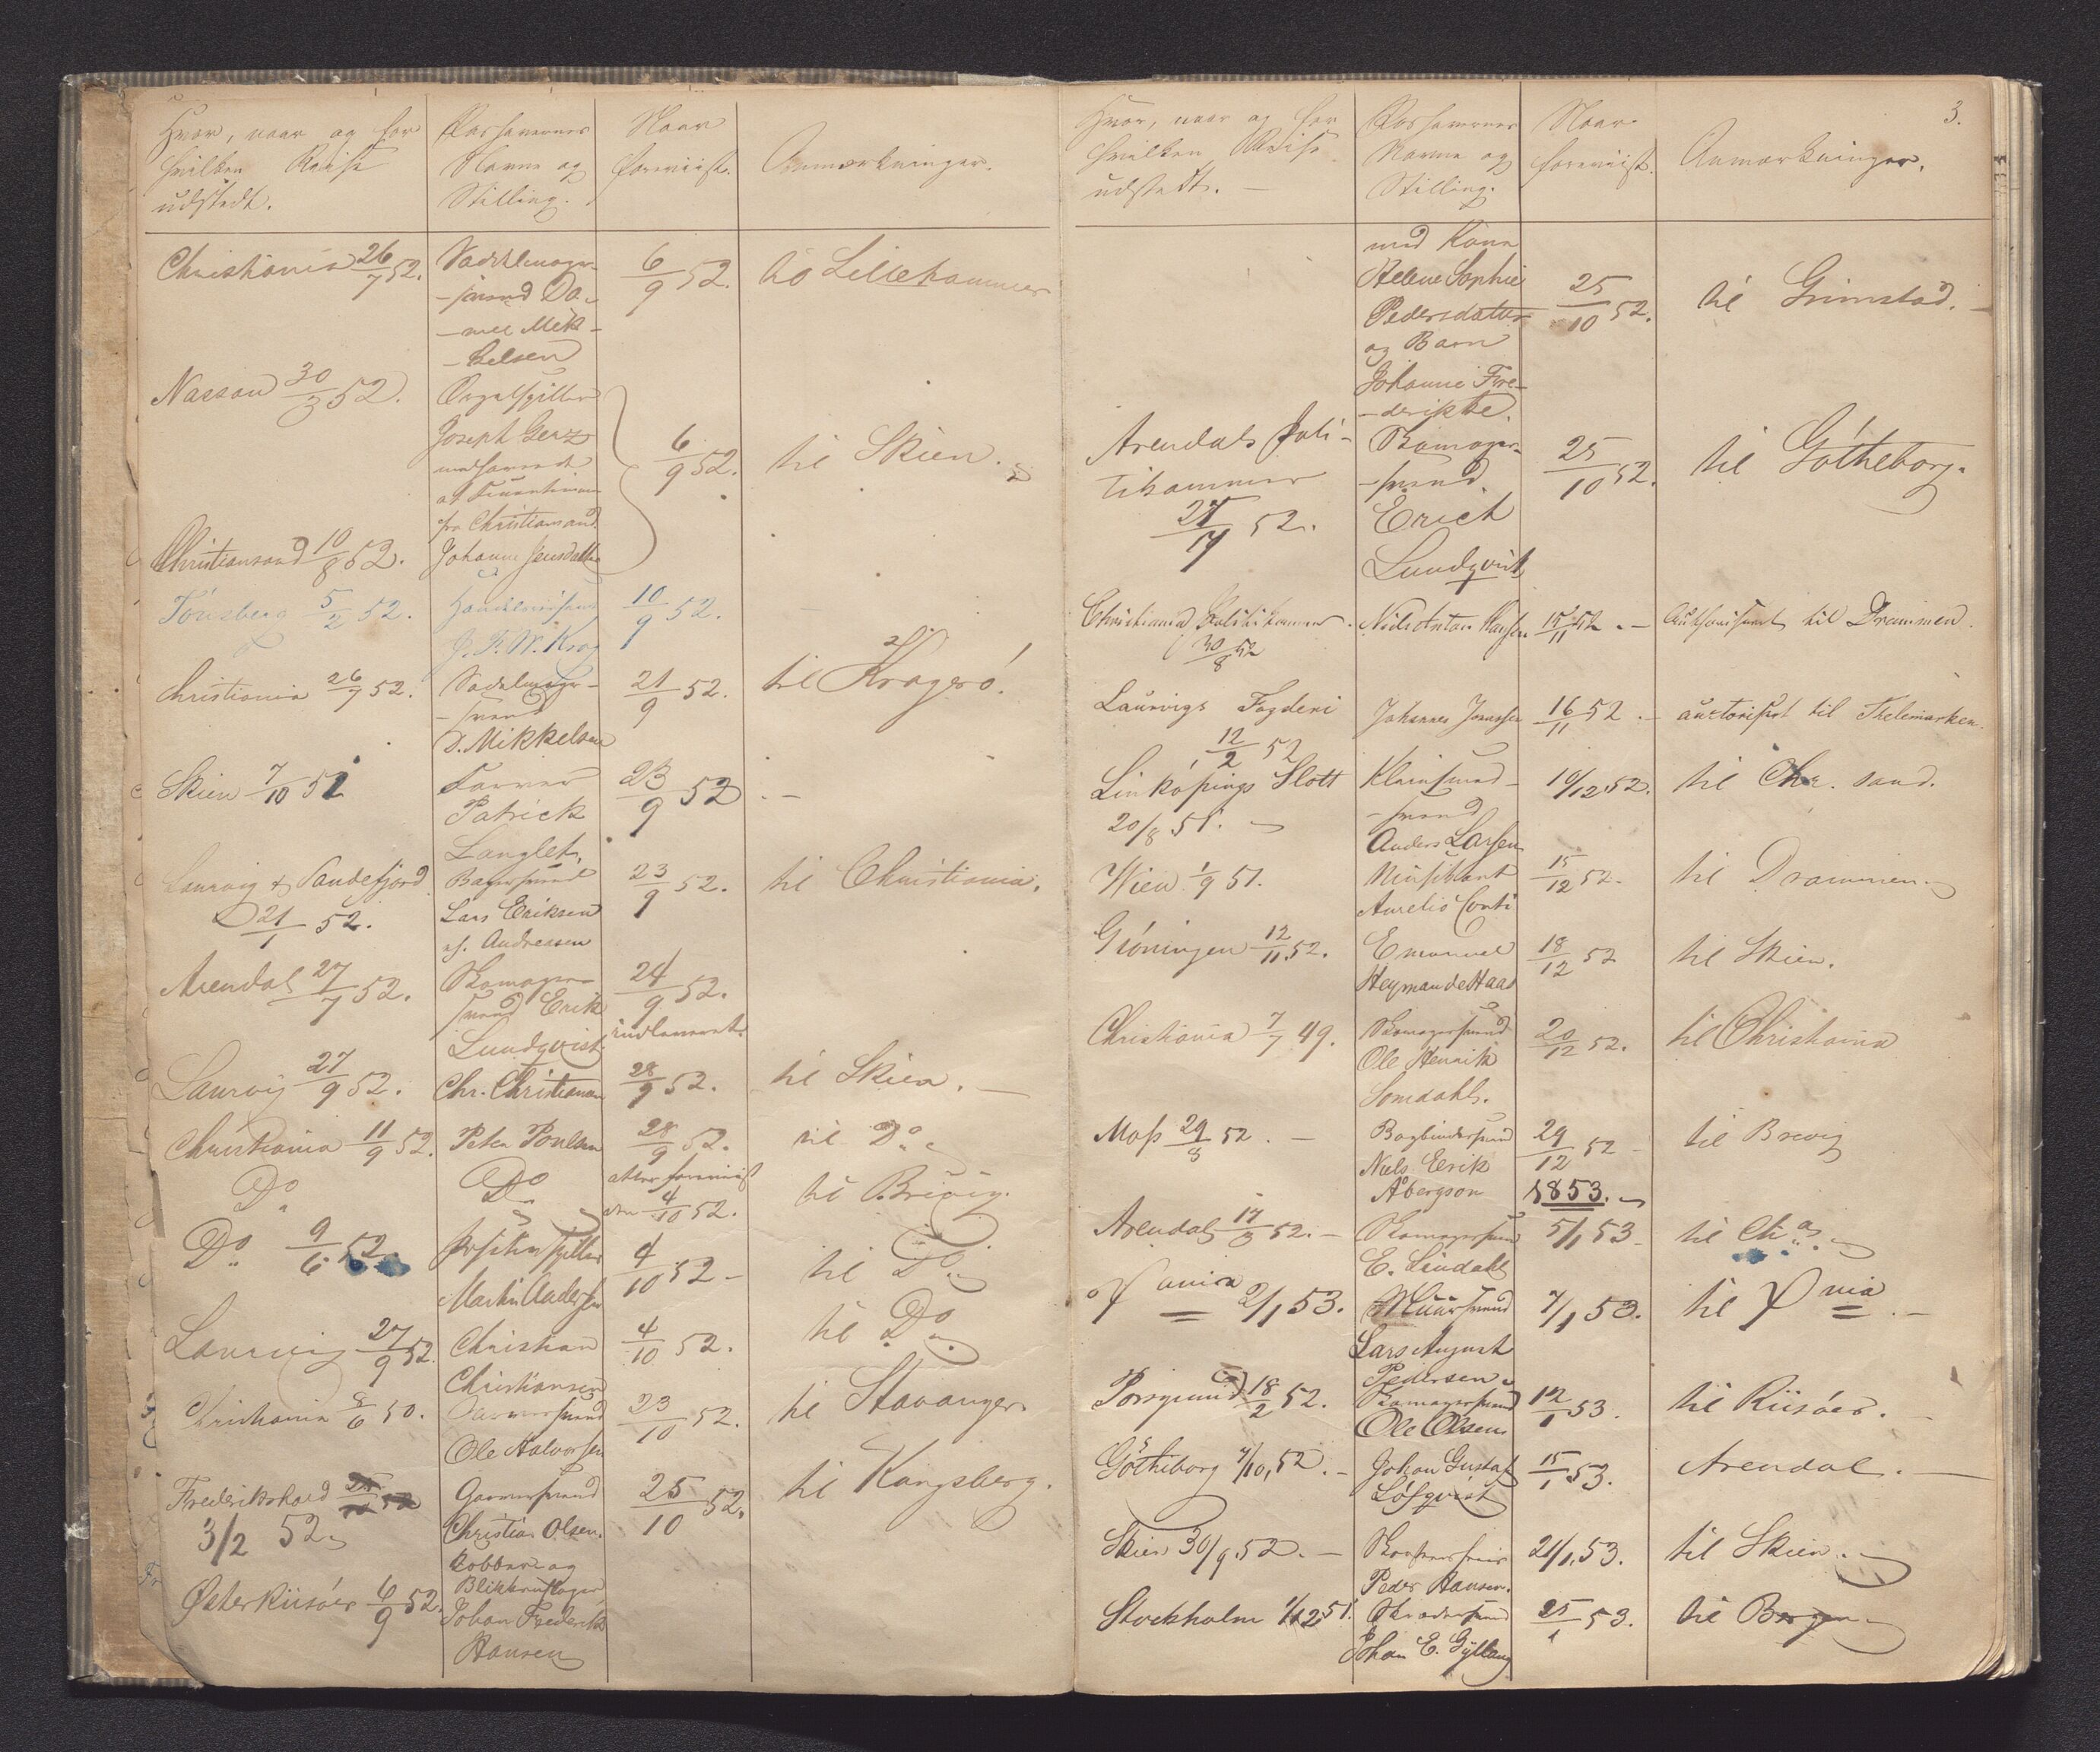 Hvor, naar og for
hvilken Reise
udstedt.
Passernes
Navne og
Stilling.
Naar
foreviist.
Anmærkninger.
Christiania 26/7 52.
Sadelmager-
-svend Da-
-niel Mik-
-kelsen
6/9 52.
til Lillehammer
Nassau 30/3 52.
Orgelspiller
Joseph Gerz
6/9 52.
til Skien.
fra Christiansand
Christiansand 10/8 52.
Johanne Jensdatter
Tönsberg 5/2 52.
J. P. W. Krog
10/9 52.
Christiania 26/7 52.
Sadelmager-
-svend
D. Mikkelsen
21/9 52.
til Kragerö.
Skien 7/10 51
Farver
Patrick
Langlet.
23/9 52
Laurvig & Sandefjord
21/1 52.
Bagersvend
Lars Eriksen
Andreasen
23/9 52.
til Christiania.
Arendal 27/7 52.
Skomager-
svend Erik
Lundqvist
24/9 52.
indleveret
Laurvig 27/9 52.
Chr. Christiansen
28/9 52.
til Skien.
Christiania 11/9 52.
Peter Poulsen
28/9 52.
til Do
Do
Do
atter foreviist
den 4/10 52.
til Brevig.
Do 9/6 52
Martin Andersen
4/10 52
til Do
Laurvig 27/9 52.
Christian
Christiansen
4/10 52.
til Do
Christiania 8/6 50.
Garversvend
Ole Halvorsen
23/10 52.
til Stavanger.
Frederikshald
3/2 52.
Garversvend
Christian Olsen.
25/10 52.
til Kongsberg.
Østerriisöer 6/9 52.
Kobber og
Blikkenslager
Johan Frederik
Hansen
3.
Hvor, naar og for
hvilken Reise
udstedt.
Passernes
Navne og
Stilling.
Naar
foreviist.
Anmærkninger.
med Kone
Helene Sophie
Pedersdatter
og Barn
Johanne Fre-
-derikke.
25/10 52.
til Grimstad.
Arendals Poli-
tikammer
52.
Skomager-
-svend
Erich
Lundqvist
25/10 52.
til Götheborg.
Christiania Politikammer.
30/8 52
Nils Anton Hansen
15/11 52.
til Drammen.
Laurvigs Fogderi
12/2 52
Johannes Jonassen
16/11 52.
auctoriseret til Thelemarken.
Linköpings Slott
20/8 51.
Kleinsmed-
-svend
Anders Larsen
10/12 52.
til Chr. sand.
Wien 1/9 51.
Musikant
Aurelio Conti
15/12 52.
til Drammen.
Gröningen 12/11 52.
Emanuel
Heyman de Haas
18/12 52
til Skien.
Christiania 7/7 49.
Skomagersvend
Ole Henrik
Somdahl.
20/12 52.
til Christiania
Moss 29/8 52.
Bogbindersvend
Niels Erik
Åbergson
29/12 52
til Brevig
1853.
Arendal 52.
Skomagersvend
E. Lindahl
5/1 53
til Ch a.
Xania 2/1 53.
Muursvend
Lars August
Pedersen
7/1 53.
til Xnia.
Porsgrund 18/2 52.
Skomagersvend
Ole Olsen
12/1 53.
til Riisöer.
Götheborg 4/10 52.
Johan Gustaf
Löfqvist
15/1 53.
Arendal.
Skien 30/9 52.
Peder Hansen.
21/1 53.
til Skien.
Stockholm 1/12 51.
Skrædersvend
Johan E. Gylling
25/1 53.
til Bergen